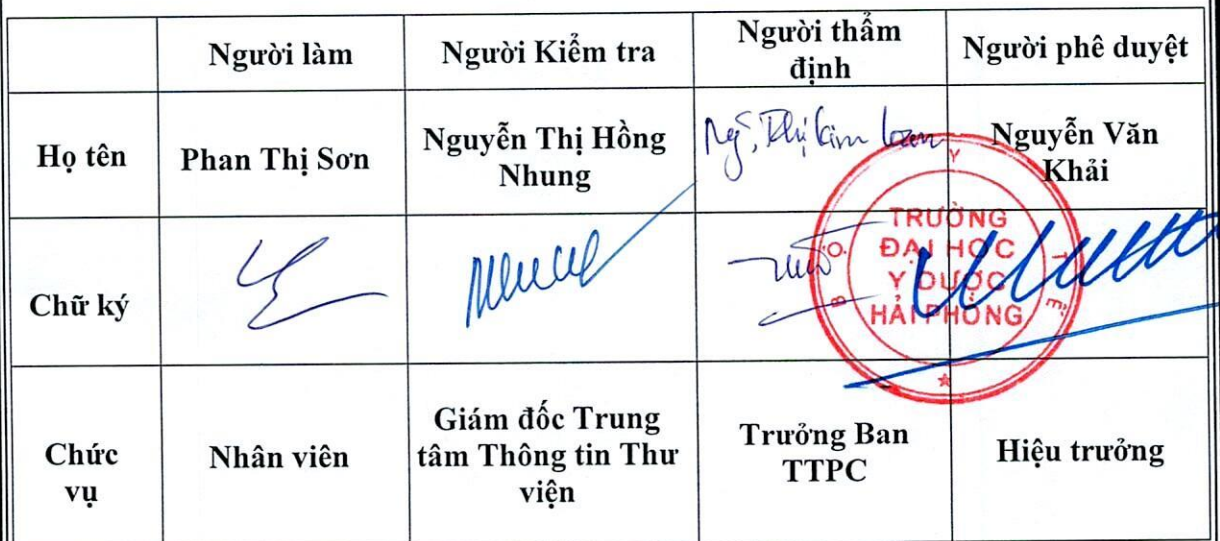 Người làm
Người Kiểm tra
Người thẩm
định
Người phê duyệt
Họ tên
Phan Thị Sơn
Nguyễn Thị Hồng
Nhung
Ng̃, Thị Kim Loan
Nguyễn Văn
Khải
Chữ ký
BỘ Y TẾ
TRƯỜNG
ĐẠI HỌC
Y DƯỢC
HẢI PHÒNG
Chức
vụ
Nhân viên
Giám đốc Trung
tâm Thông tin Thư
viện
Trưởng Ban
TTPC
Hiệu trưởng